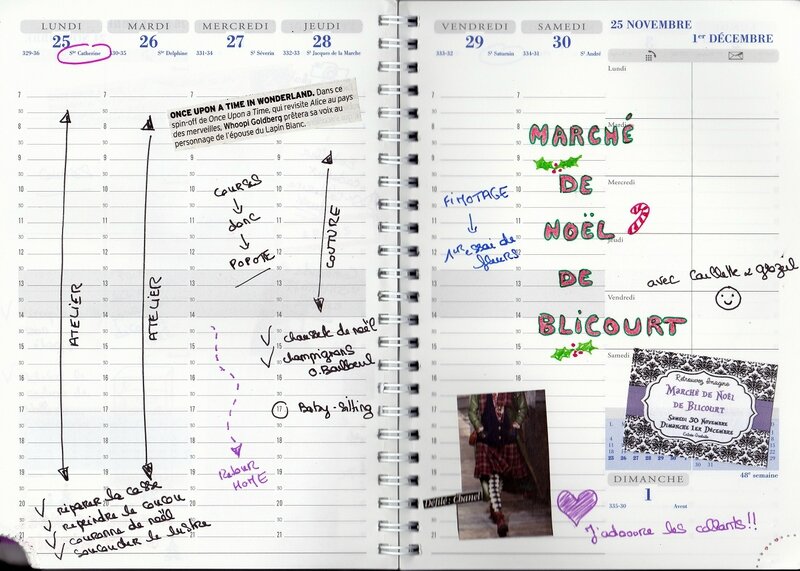 LUNDI
25
329-36
Ste Catherine
MARDI
26
330-35
Ste Delphine
MERCREDI
27
331-34
St Séverin
JEUDI
28
332-33
St Jacques de la Marche
VENDREDI
29
333-32
St Saturnin
SAMEDI
30
334-31
St André
25 NOVEMBRE
1er DÉCEMBRE
ONCE UPON A TIME IN WONDERLAND. Dans ce
spin-off de Once Upon a Time, qui revisite Alice au pays
des merveilles, Whoopi Goldberg prêtera sa voix au
personnage de l'épouse du Lapin Blanc.
ATELIER
ATELIER
COURSES
DONC
POPOTE
RETOUR
HOME
COUTURE
chaussette de noël
champignons
O. Bailloeul
17
Baby-sitting
réparer la casse
repeindre le coucou
couronne de noël
commander le lustre
FIMOTAGE
1er essai de
fleurs
MARCHÉ
DE
NOËL
DE
BLICOURT
Lundi
Mardi
Mercredi
Jeudi
Vendredi
Samedi
avec Caillette et
Retrouvez Imagine
MARCHÉ DE NOËL
DE BLICOURT
SAMEDI 30 NOVEMBRE
DIMANCHE 1ER DÉCEMBRE
Entrée Gratuite
48e semaine
DIMANCHE
1
335-30
Avent
Défilé : Chanel
J'adooore les collants!!